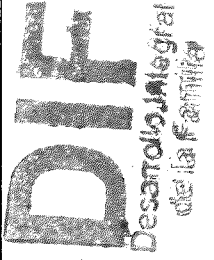 DIF
Desarrollo Integral
de la Familia